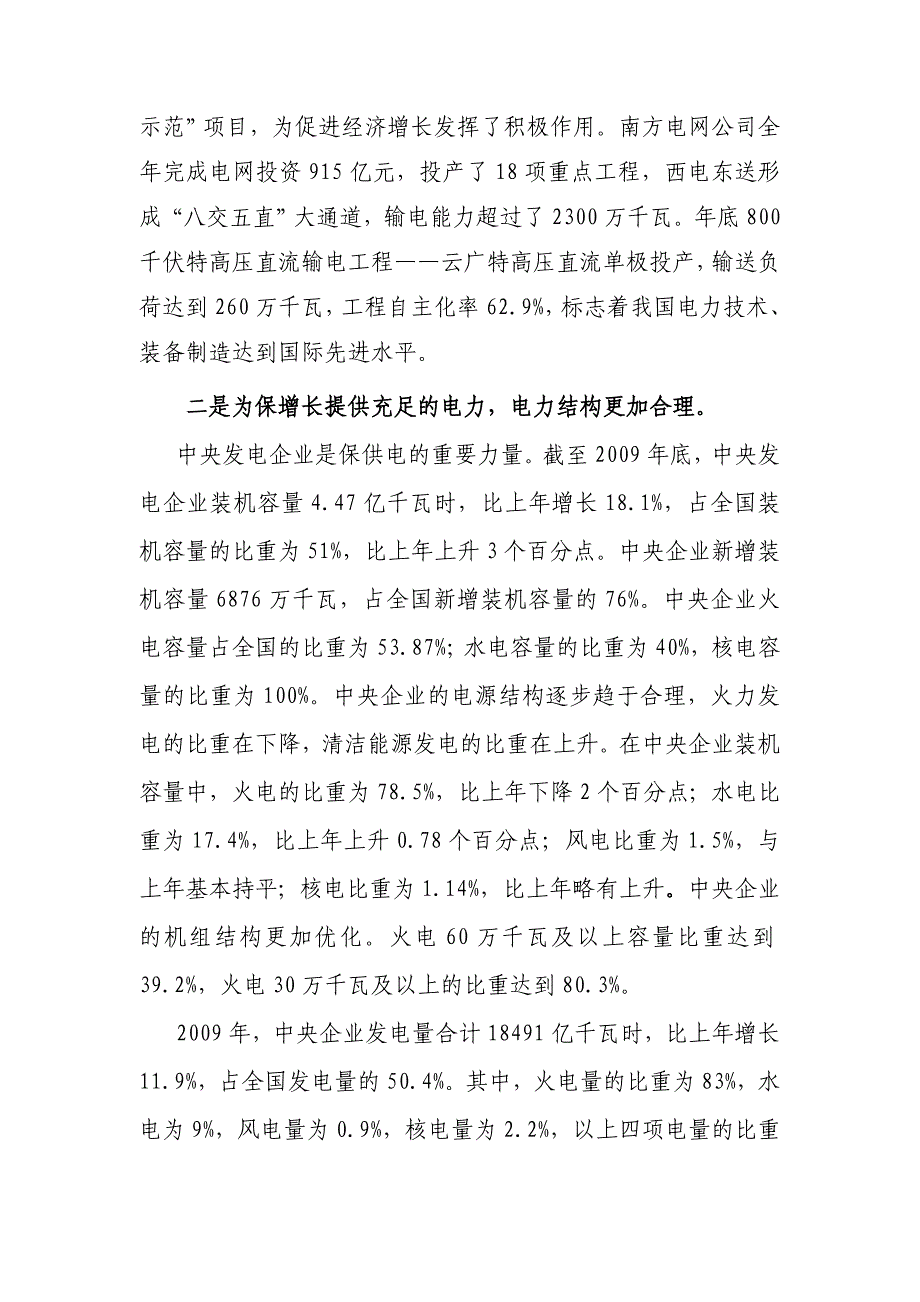 示范”项目，为促进经济增长发挥了积极作用。南方电网公司全
年完成电网投资 915 亿元，投产了 18 项重点工程，西电东送形
成“八交五直”大通道，输电能力超过了 2300 万千瓦。年底 800
千伏特高压直流输电工程——云广特高压直流单极投产，输送负
荷达到 260 万千瓦，工程自主化率 62.9%，标志着我国电力技术、
装备制造达到国际先进水平。
二是为保增长提供充足的电力，电力结构更加合理。
中央发电企业是保供电的重要力量。截至 2009 年底，中央发
电企业装机容量 4.47 亿千瓦时，比上年增长 18.1%，占全国装
机容量的比重为 51%，比上年上升 3 个百分点。中央企业新增装
机容量 6876 万千瓦，占全国新增装机容量的 76%。中央企业火
电容量占全国的比重为 53.87%；水电容量的比重为 40%，核电容
量的比重为 100%。中央企业的电源结构逐步趋于合理，火力发
电的比重在下降，清洁能源发电的比重在上升。在中央企业装机
容量中，火电的比重为 78.5%，比上年下降 2 个百分点；水电比
重为 17.4%，比上年上升 0.78 个百分点；风电比重为 1.5%，与
上年基本持平；核电比重为 1.14%，比上年略有上升。中央企业
的机组结构更加优化。火电 60 万千瓦及以上容量比重达到
39.2%，火电 30 万千瓦及以上的比重达到 80.3%。
2009 年，中央企业发电量合计 18491 亿千瓦时，比上年增长
11.9%，占全国发电量的 50.4%。其中，火电量的比重为 83%，水
电为 9%，风电量为 0.9%，核电量为 2.2%，以上四项电量的比重